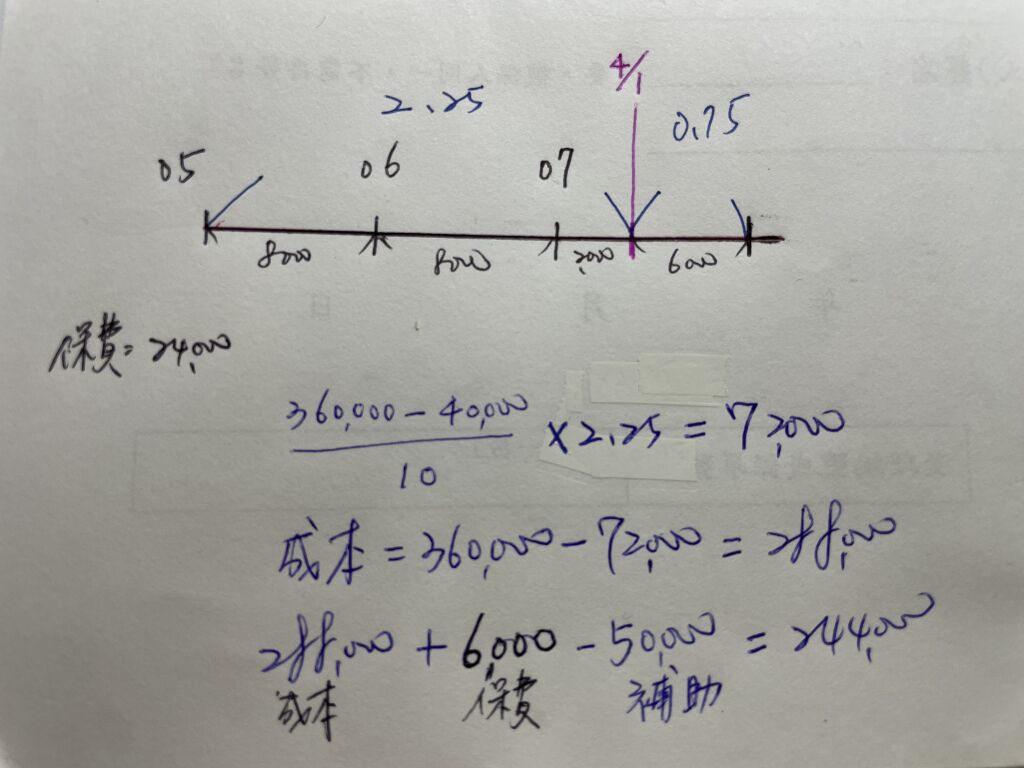 4/1
2.25
0.75
05 06 07
8000 8000 2,000 6000
保費=24,000
360,000-40,000
×2.25=72,000
10
成本=360,000-72,000=288,000
288,000+6,000-50,000=244,000
成本 保費 補助